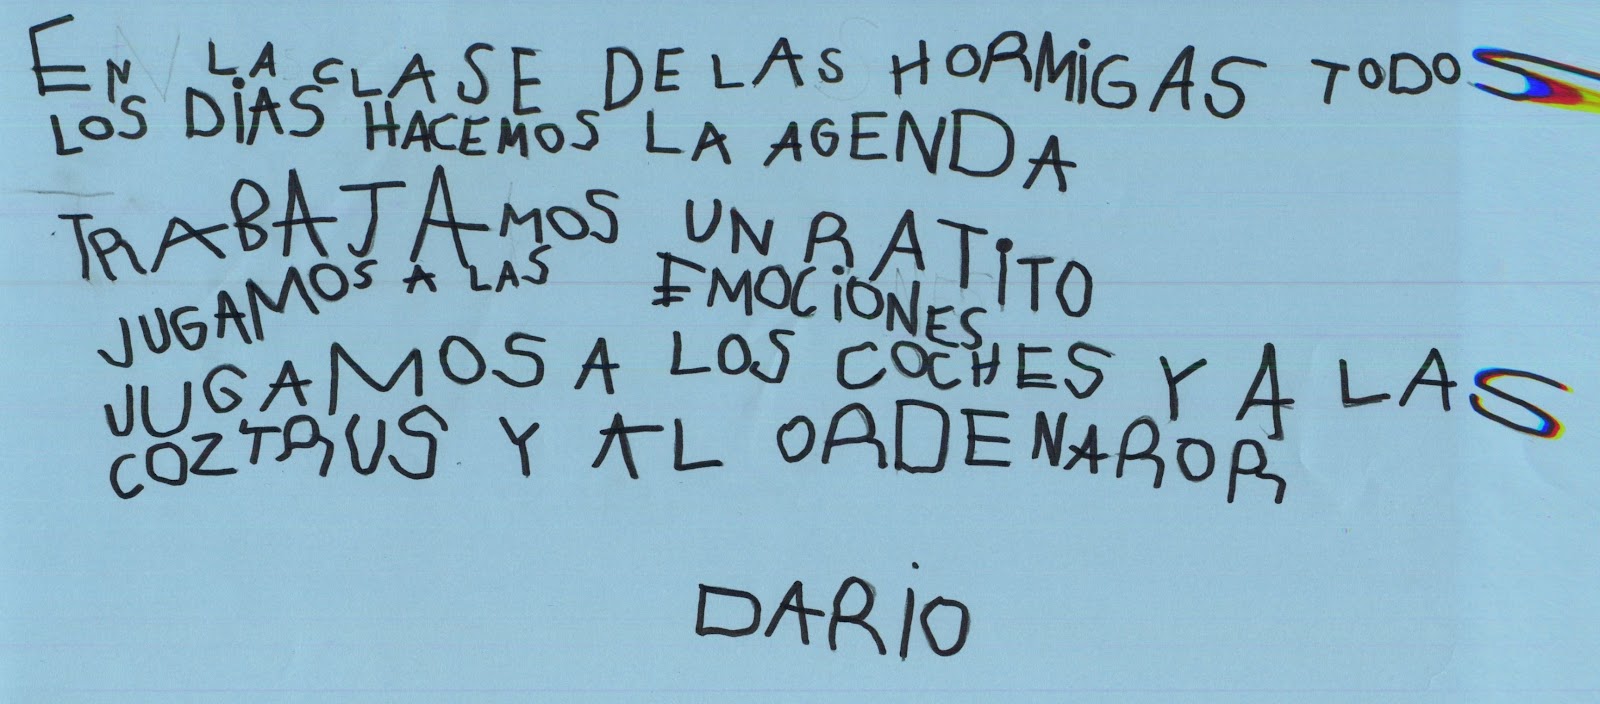 EN LA CLASE DE LAS HORMIGAS TODOS
LOS DÍAS HACEMOS LA AGENDA
TRABAJAMOS UN RATITO
JUGAMOS A LAS EMOCIONES
JUGAMOS A LOS COCHES Y A LAS
COZTRUS Y AL ORDENAROR
DARIO